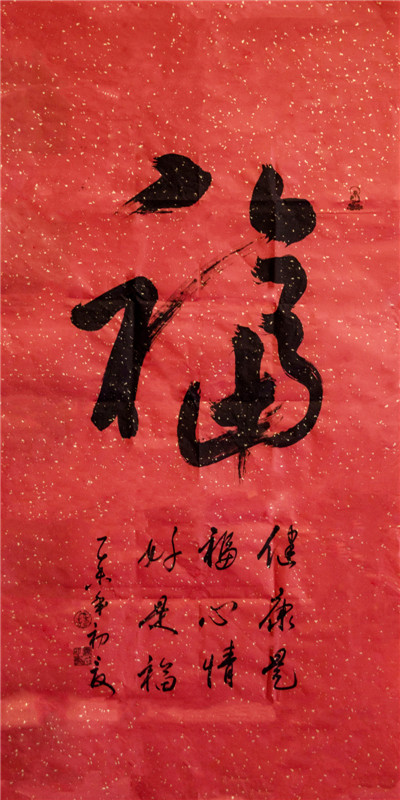 福
健康是
福心情
好是福
乙未年初夏